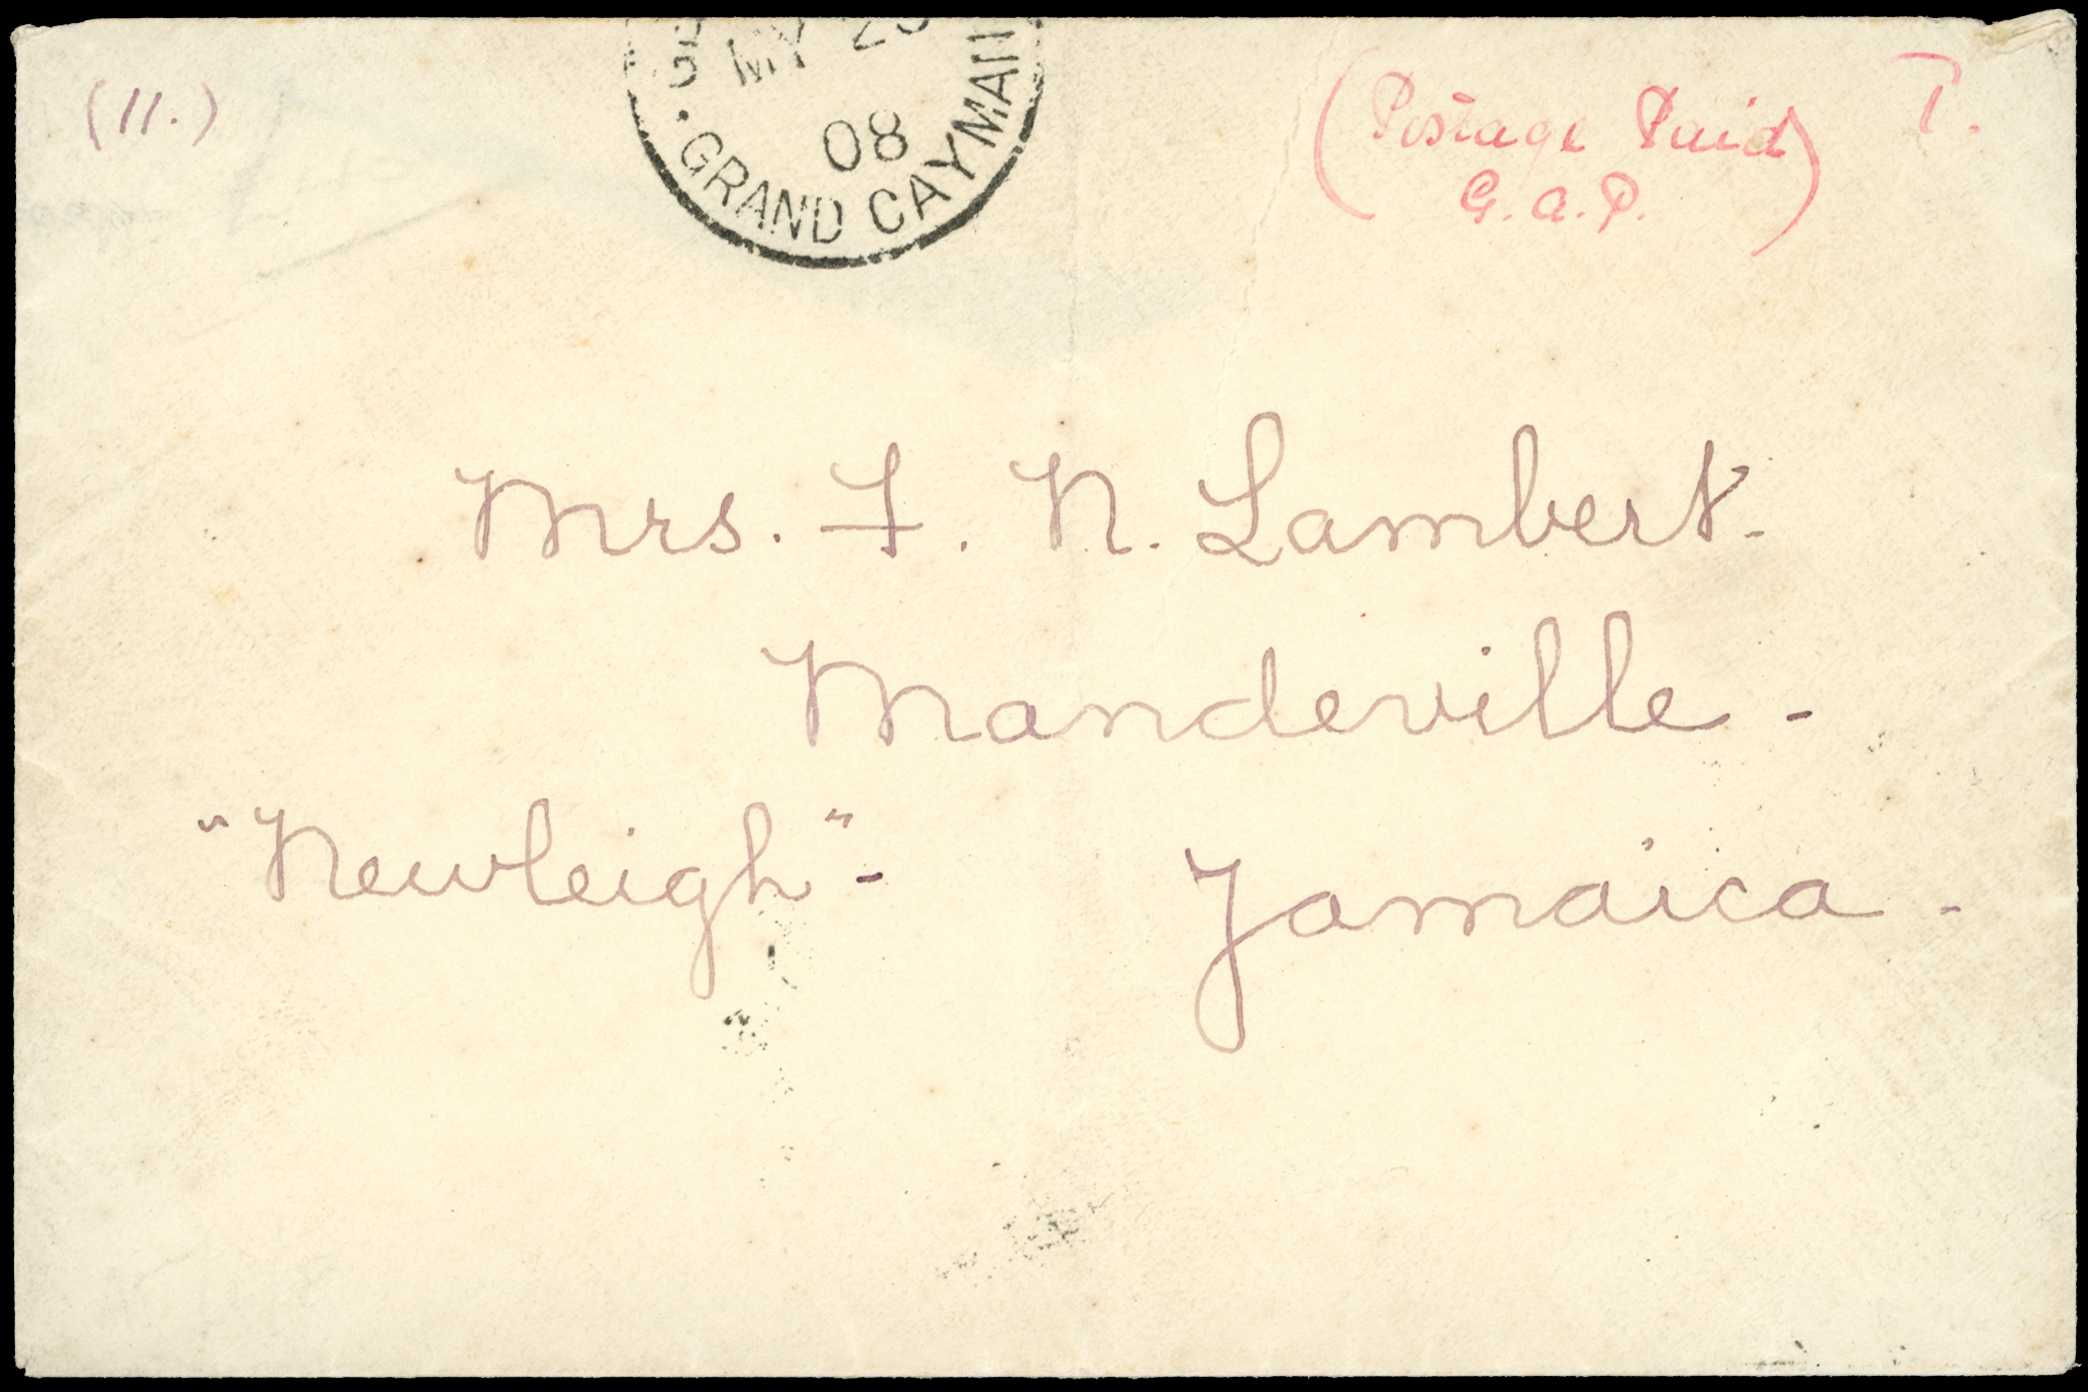 (11.)
MY 23
08
GRAND CAYMAN
(Postage Paid)
G.A.P.
T.
Mrs. F. N. Lambert.
Mandeville -
"Newleigh" -
Jamaica -